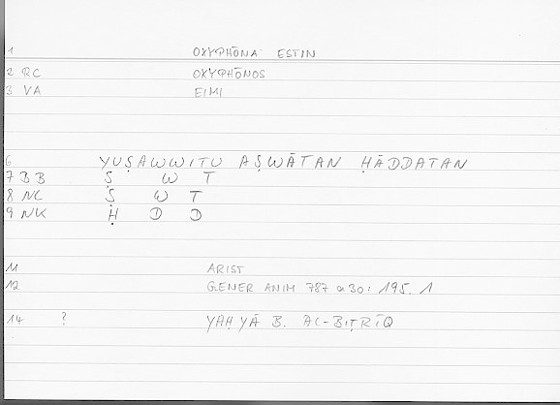 1 OXYPHŌNA ESTIN
2 RC OXYPHŌNOS
3 VA EIMI
6 YUṢAWWITU AṢWĀTAN ḤĀDDATAN
7 BB Ṣ W T
8 NL Ṣ W T
9 NK Ḥ D D
11 ARIST
12 GENER ANIM 787 a 30: 195. 1
14 ? YAḤYĀ B. AL-BIṬRĪQ